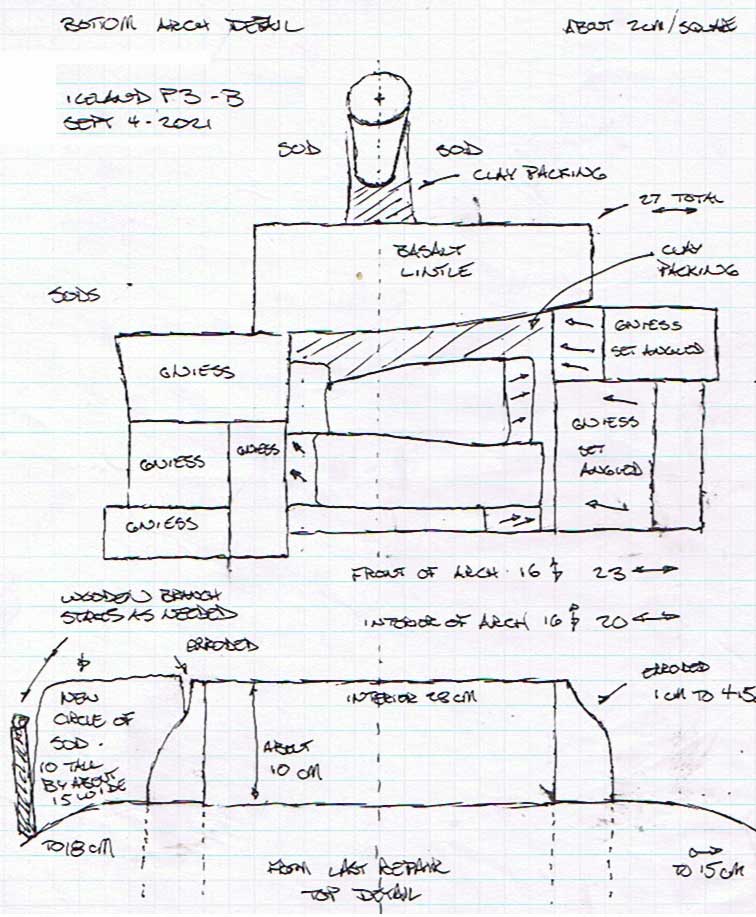 BOTTOM ARCH DETAIL
ABOUT 2CM/SQUARE
ICELAND P3-B
SEPT 4-2021
SOD
SOD
CLAY PACKING
27 TOTAL
BASALT
LINTLE
CLAY
PACKING
SODS
GNIESS
SET ANGLED
GNIESS
GNIESS
SET
ANGLED
GNIESS
GNIESS
GNIESS
FRONT OF ARCH 16 23
INTERIOR OF ARCH 16 20
WOODEN BRANCH
STAKES AS NEEDED
ERRODED
ERRODED
1CM TO 4.5
INTERIOR 28CM
NEW
CIRCLE OF
SOD.
10 TALL
BY ABOUT
15 WIDE
ABOUT
10 CM
TO 18CM
TO 15CM
FROM LAST REPAIR
TOP DETAIL